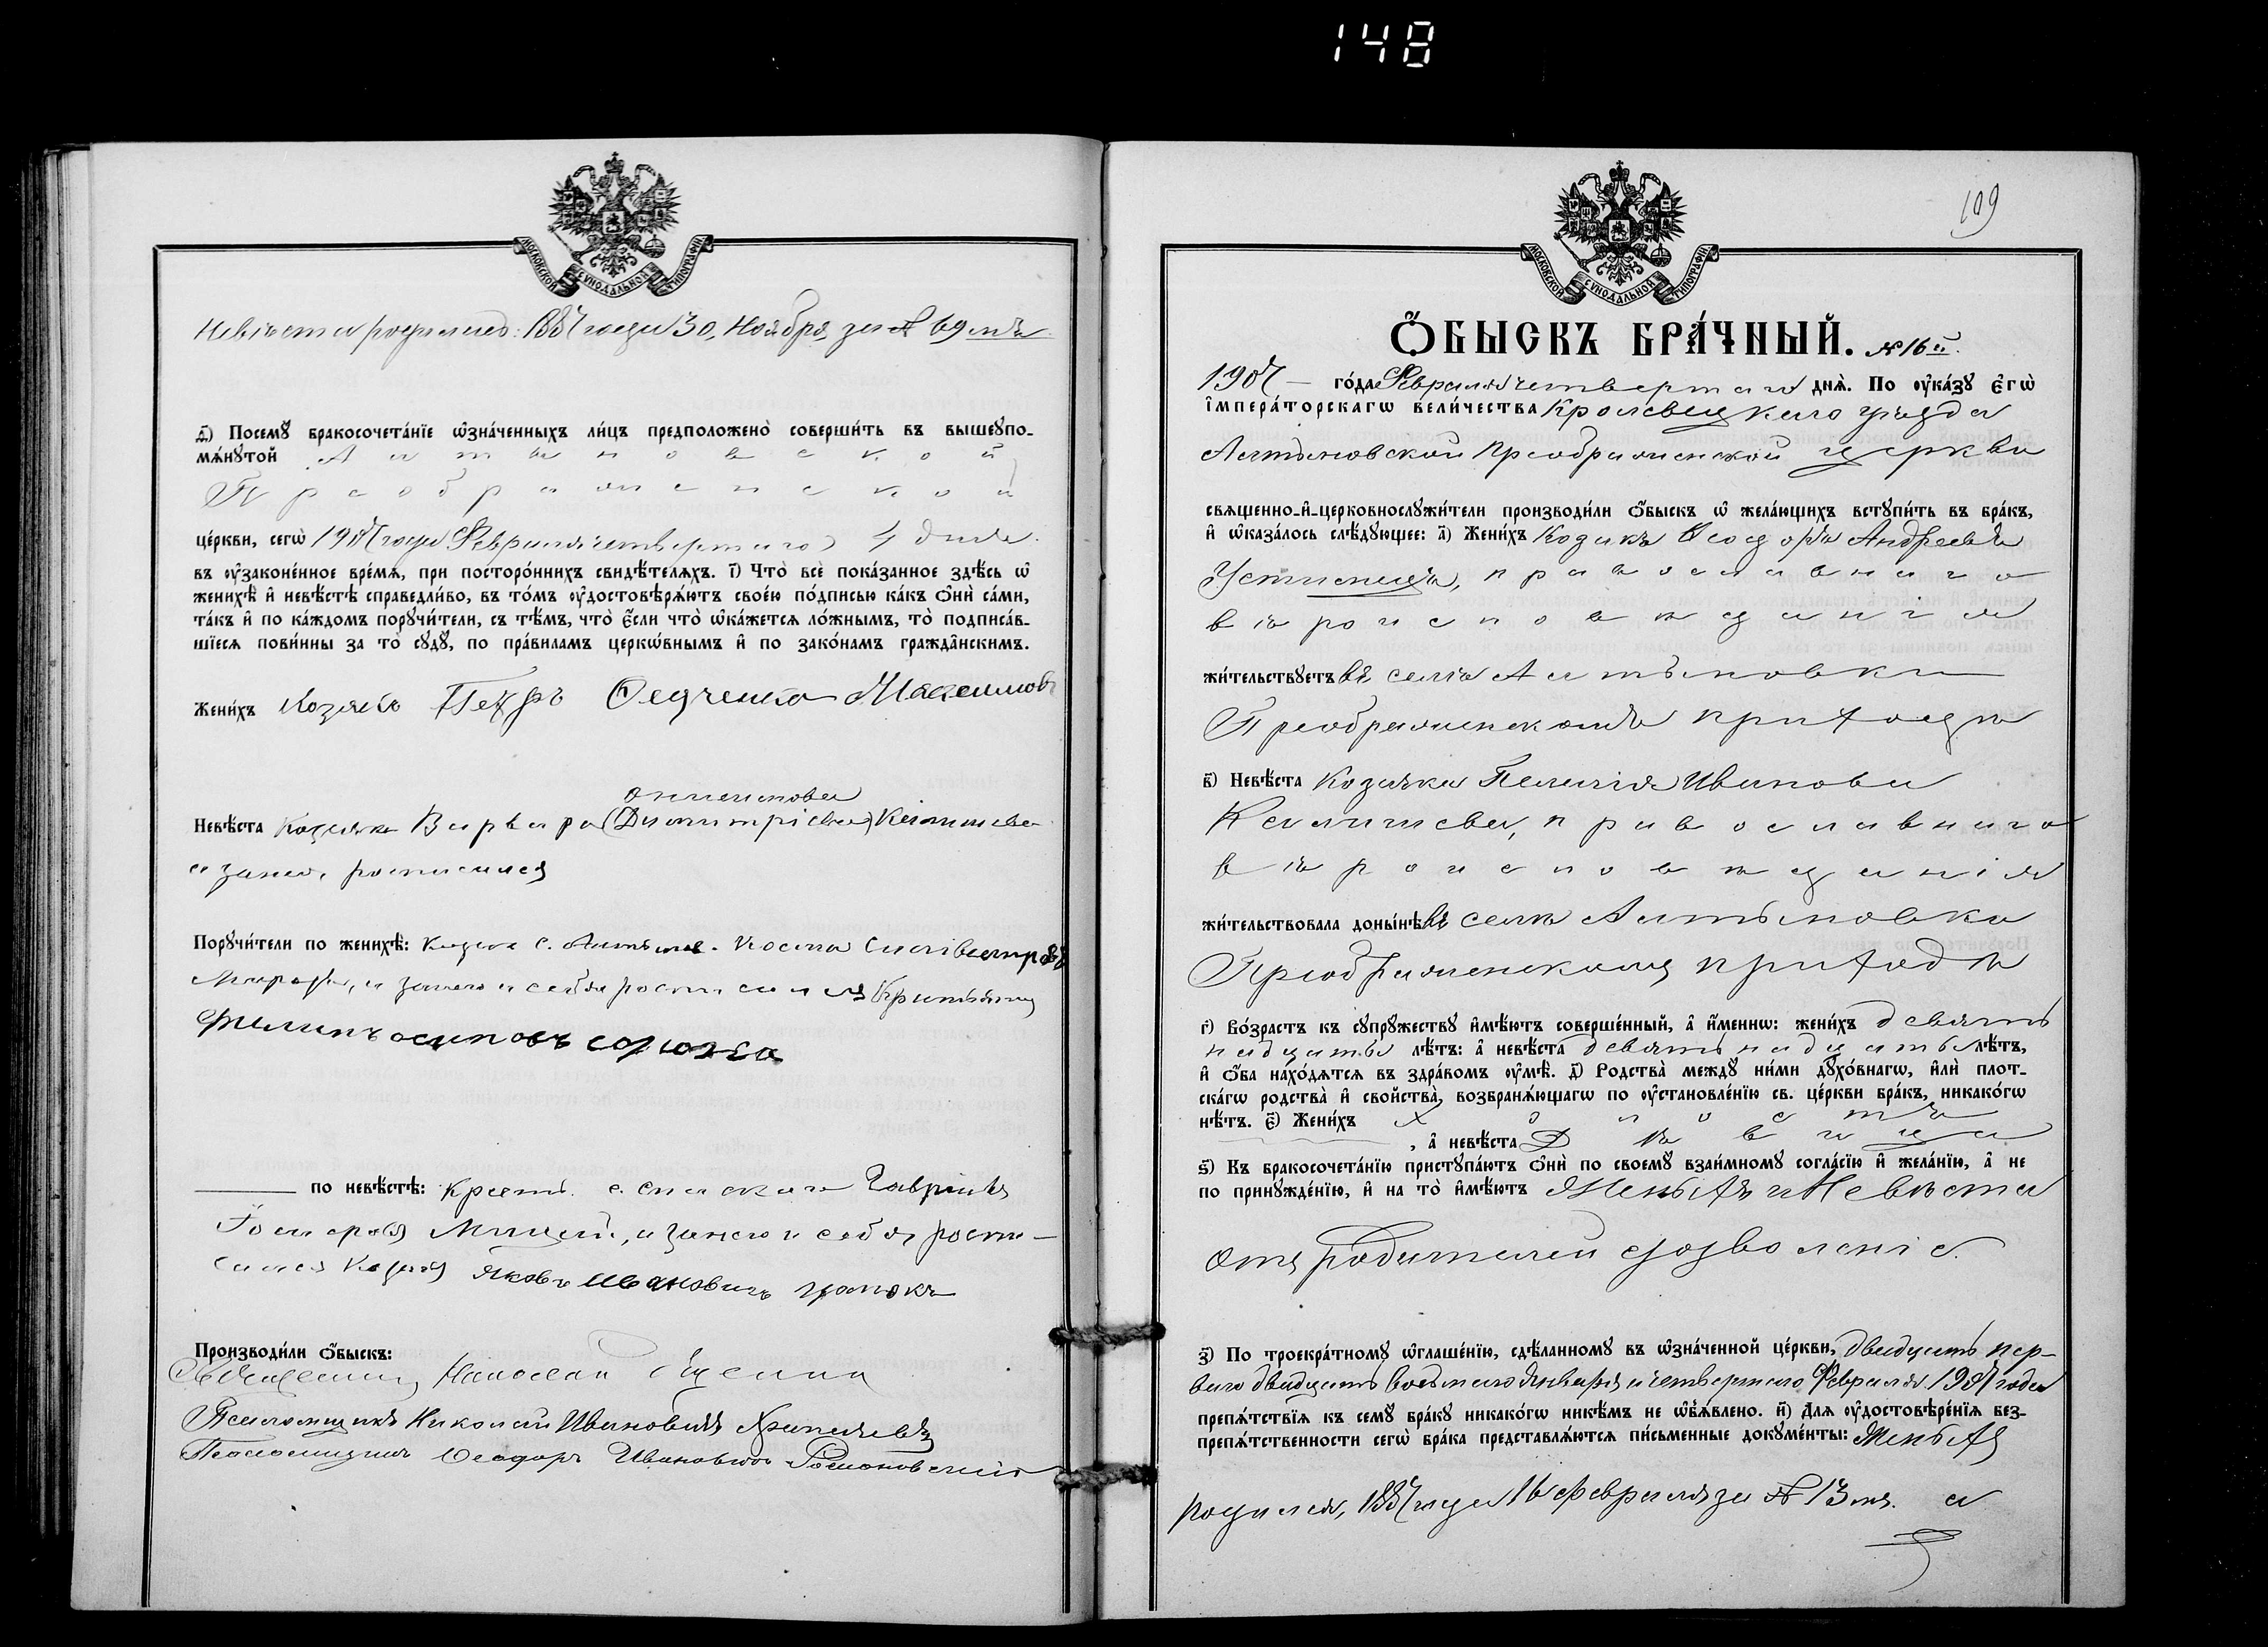 148
МОСКОВСКОЙ СѴНОДАЛЬНОЙ ТИПОГРАФІИ.
Невѣста родилась: 1887 года 30, Ноября, за № 69 мъ
д҃) Посемꙋ̀ бракосочета́нїе ѡ҆зна́ченныхъ ли́цъ предположено̀ соверши́ть въ вышеꙋпо-
мѧ́нꙋтой Алтыновской
Преображенской
це́ркви, сегѡ̀ 1907 года Февраля четвертаго 4 дня.
въ ᲂу҆законе́нное вре́мѧ, при посторо́ннихъ свидѣ́телѧхъ. і҃) Что̀ всѐ пока́занное здѣ́сь ѡ҆
женихѣ̀ и҆ невѣ́стѣ справедли́во, въ то́мъ ᲂу҆достовѣрѧ́ютъ свое́ю по́дписью ка́къ ѻ҆нѝ са́ми,
та́къ и҆ по ка́ждомъ порꙋчи́тели, съ тѣ́мъ, что̀ є҆́сли что̀ ѡ҆ка́жется ло́жнымъ, то̀ подписа́в-
шїеся пови́нны за то̀ сꙋдꙋ̀, по пра́виламъ церкѡ́внымъ и҆ по зако́намъ гражда̑нскимъ.
Жени́хъ Козакъ Петръ Федченко Максимовъ
Онисимова
Невѣ́ста Козачка Варвара (Димитріева)
а занею, росписался
Порꙋчи́тели по женихѣ̀: Козакъ с. Алтын. Косма
и занего и себя росписался
Филипъ осиповъ
по невѣ́стѣ: Крест. с. Спаскаго Гавріилъ
и занего и себя роспи-
сался Козакъ Яковъ Ивановичъ
Производи́ли ѻ҆́быскъ:
Священникъ
Псаломщикъ Николай Ивановичъ
Псаломщикъ Ѳеодоръ Ивановичъ Романовскій
109
МОСКОВСКОЙ СѴНОДАЛЬНОЙ ТИПОГРАФІИ.
Ѻ҆́БЫСКЪ БРА́ЧНЫЙ. № 16 й.
1907 — го́да Февраля четвертаго днѧ̀. По ᲂу҆ка́зꙋ є҆гѡ̀
і҆мпера́торскагѡ вели́чества Кролевецкаго уѣзда
Алтыновской Преображенской церкви
свяще́нно-и҆-церковнослꙋжи́тели производи́ли ѻ҆́быскъ ѡ҆ жела́ющихъ встꙋпи́ть въ бра́къ,
и҆ ѡ҆каза́лось слѣ́дꙋющее: а҃) Жени́хъ Козакъ Ѳеодоръ Андреевъ
Устименко, православнаго
вѣроисповѣданія
жи́тельствꙋетъ въ селѣ Алтыновки
Преображенскомъ приходѣ
в҃) Невѣ́ста Козачка Пелагія Иванова
православнаго
вѣроисповѣданія
жи́тельствовала доны́нѣ въ селѣ Алтыновки
Преображенскомъ приходѣ
г҃) Во́зрастъ къ сꙋпрꙋ́жествꙋ и҆мѣ́ютъ соверше́нный, а҆ и҆́меннѡ: жени́хъ девят
надцать лѣ́тъ: а҆ невѣ́ста девятнадцать лѣ́тъ,
и҆ ѻ҆́ба нахо́дятся въ здра́вомъ ᲂу҆мѣ̀. д҃) Родства̀ междꙋ ни́ми дꙋхо́внагѡ, и҆лѝ плот-
ска́гѡ родства̀ и҆ сво́йства̀, возбранѧ́ющагѡ по ᲂу҆становле́нїю св. це́ркви бра́къ, никако́гѡ
нѣ́тъ. є҃) Жени́хъ Холостъ
, а҆ невѣ́ста Дѣвица
ѕ҃) Къ бракосочета́нїю пристꙋпа́ютъ ѻ҆нѝ по своемꙋ̀ взаи́мномꙋ согла́сїю и҆ жела́нїю, а҆ не
по принꙋжде́нїю, и҆ на то̀ и҆мѣ́ютъ Женихъ и Невѣста
отъ родителей дозволеніе.
з҃) По троекра́тномꙋ ѡ҆глаше́нїю, сдѣ́ланномꙋ въ ѡ҆зна́ченной це́ркви, двадцать пер-
ваго двадцать восьмаго Января и четвертаго Февраля 1907 года
препѧ́тствїѧ къ семꙋ̀ бра́кꙋ никако́гѡ никѣ́мъ не ѡ҆б̾ѧ́влено. и҃) Для ᲂу҆достовѣре́нїѧ без-
препѧ́тственности сегѡ̀ бра́ка представлѧ́ются пи́сьменные докꙋме́нты: Женихъ
родился, 1887 года 16 Февраля за № 13 мъ. а